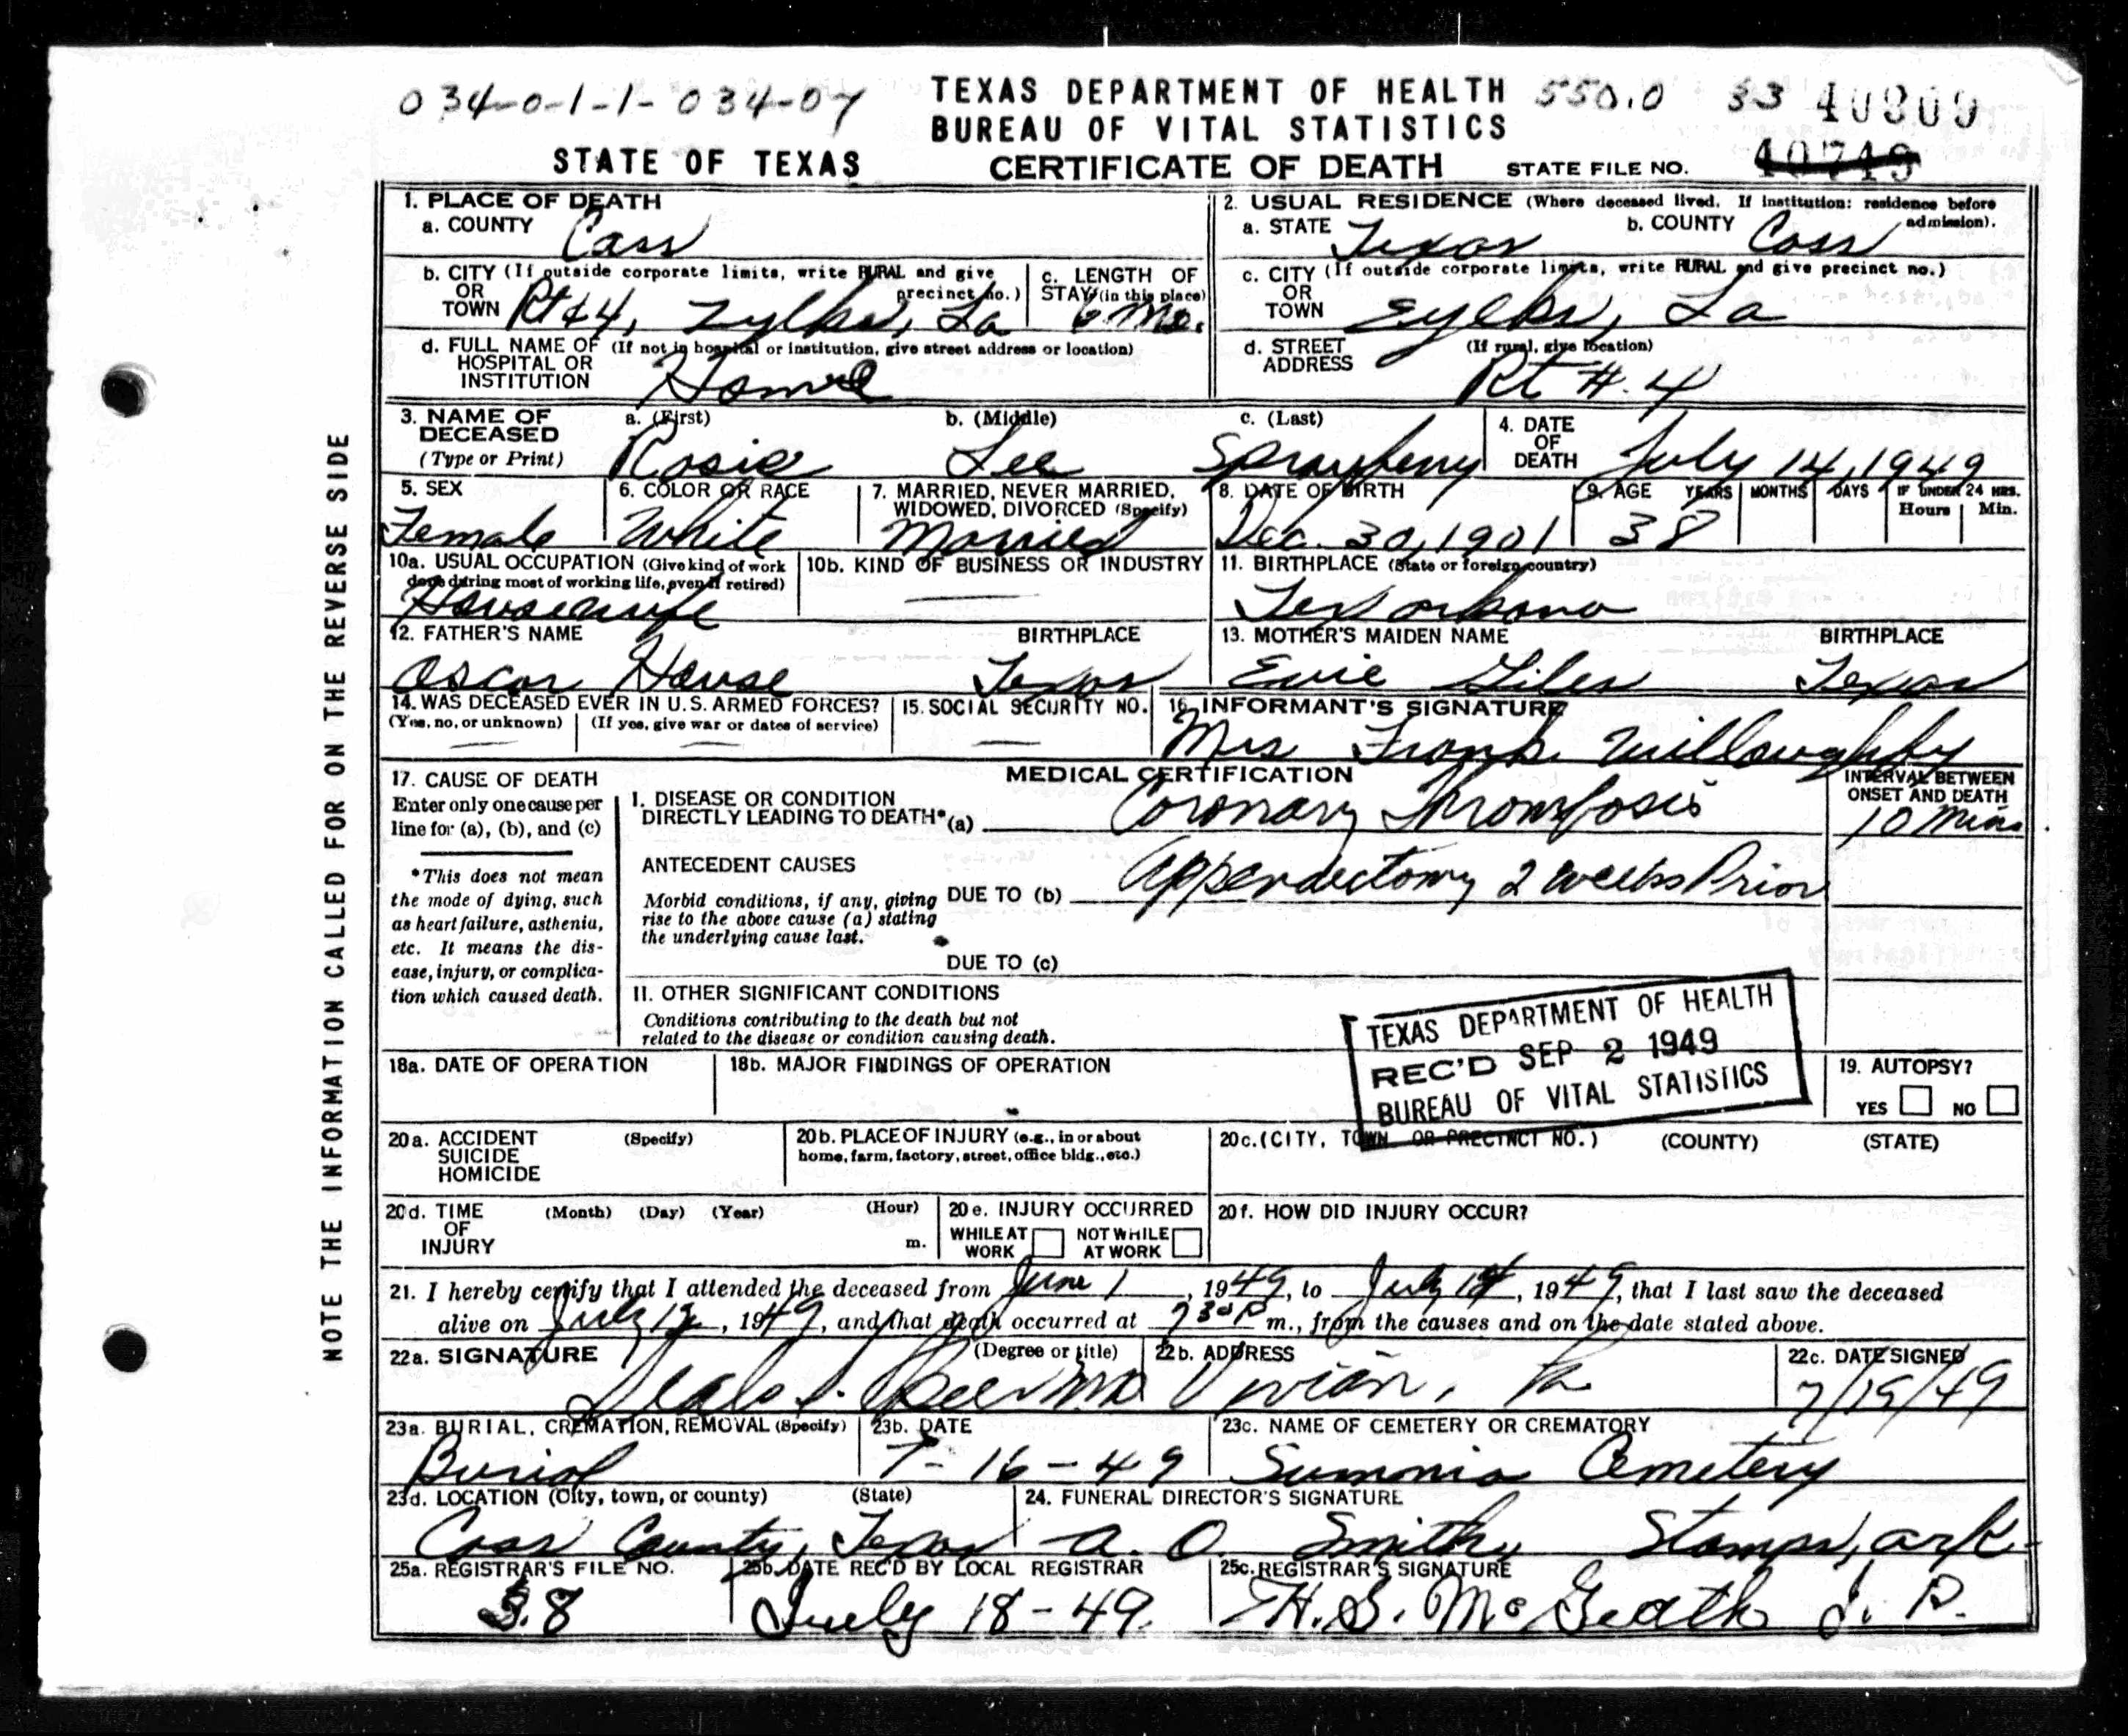 034-0-1-1-034-07 TEXAS DEPARTMENT OF HEALTH 550.0 33 40809
BUREAU OF VITAL STATISTICS
STATE OF TEXAS CERTIFICATE OF DEATH STATE FILE NO. 40749
NOTE THE INFORMATION CALLED FOR ON THE REVERSE SIDE
1. PLACE OF DEATH
a. COUNTY Cass
2. USUAL RESIDENCE (Where deceased lived. If institution: residence before admission).
a. STATE Texas b. COUNTY Cass
b. CITY (If outside corporate limits, write RURAL and give precinct no.)
OR
TOWN Rt #4, Zylks, La
c. LENGTH OF
STAY (in this place)
6 Mo.
c. CITY (If outside corporate limits, write RURAL and give precinct no.)
OR
TOWN Zylks, La
d. FULL NAME OF (If not in hospital or institution, give street address or location)
HOSPITAL OR
INSTITUTION Home
d. STREET (If rural, give location)
ADDRESS Rt #. 4
3. NAME OF a. (First) b. (Middle) c. (Last)
DECEASED
(Type or Print) Rosie Lee Sprayberry
4. DATE
OF
DEATH July 14, 1949
5. SEX
Female
6. COLOR OR RACE
White
7. MARRIED, NEVER MARRIED,
WIDOWED, DIVORCED (Specify)
Married
8. DATE OF BIRTH
Dec. 30, 1901
9. AGE YEARS MONTHS DAYS IF UNDER 24 HRS.
Hours Min.
38
10a. USUAL OCCUPATION (Give kind of work
done during most of working life, even if retired)
Housewife
10b. KIND OF BUSINESS OR INDUSTRY
11. BIRTHPLACE (State or foreign country)
Texarkana
12. FATHER'S NAME BIRTHPLACE
Oscar House Texas
13. MOTHER'S MAIDEN NAME BIRTHPLACE
Evie Giles Texas
14. WAS DECEASED EVER IN U.S. ARMED FORCES?
(Yes, no, or unknown) (If yes, give war or dates of service)
15. SOCIAL SECURITY NO.
16. INFORMANT'S SIGNATURE
Mrs Frank Willoughby
17. CAUSE OF DEATH
Enter only one cause per
line for (a), (b), and (c)
*This does not mean
the mode of dying, such
as heart failure, asthenia,
etc. It means the dis-
ease, injury, or complica-
tion which caused death.
MEDICAL CERTIFICATION
I. DISEASE OR CONDITION
DIRECTLY LEADING TO DEATH* (a) Coronary Thrombosis
INTERVAL BETWEEN
ONSET AND DEATH
10 Mins
ANTECEDENT CAUSES
Morbid conditions, if any, giving
rise to the above cause (a) stating
the underlying cause last.
DUE TO (b) Appendectomy 2 weeks Prior
DUE TO (c)
II. OTHER SIGNIFICANT CONDITIONS
Conditions contributing to the death but not
related to the disease or condition causing death.
TEXAS DEPARTMENT OF HEALTH
REC'D SEP 2 1949
BUREAU OF VITAL STATISTICS
18a. DATE OF OPERATION
18b. MAJOR FINDINGS OF OPERATION
19. AUTOPSY?
YES NO
20a. ACCIDENT (Specify)
SUICIDE
HOMICIDE
20b. PLACE OF INJURY (e.g., in or about
home, farm, factory, street, office bldg., etc.)
20c. (CITY, TOWN OR PRECINCT NO.) (COUNTY) (STATE)
20d. TIME (Month) (Day) (Year) (Hour)
OF
INJURY m.
20e. INJURY OCCURRED
WHILE AT WORK NOT WHILE AT WORK
20f. HOW DID INJURY OCCUR?
21. I hereby certify that I attended the deceased from June 1, 1949, to July 14, 1949, that I last saw the deceased
alive on July 12, 1949, and that death occurred at 7 30 P m., from the causes and on the date stated above.
22a. SIGNATURE (Degree or title)
M.D.
22b. ADDRESS
Vivian, La
22c. DATE SIGNED
7/15/49
23a. BURIAL, CREMATION, REMOVAL (Specify)
Burial
23b. DATE
7-16-49
23c. NAME OF CEMETERY OR CREMATORY
Cemetery
23d. LOCATION (City, town, or county) (State)
Cass County, Texas
24. FUNERAL DIRECTOR'S SIGNATURE
A. O. Smith, Stamps, Ark
25a. REGISTRAR'S FILE NO.
38
25b. DATE REC'D BY LOCAL REGISTRAR
July 18-49.
25c. REGISTRAR'S SIGNATURE
H. S. McGeath J. P.